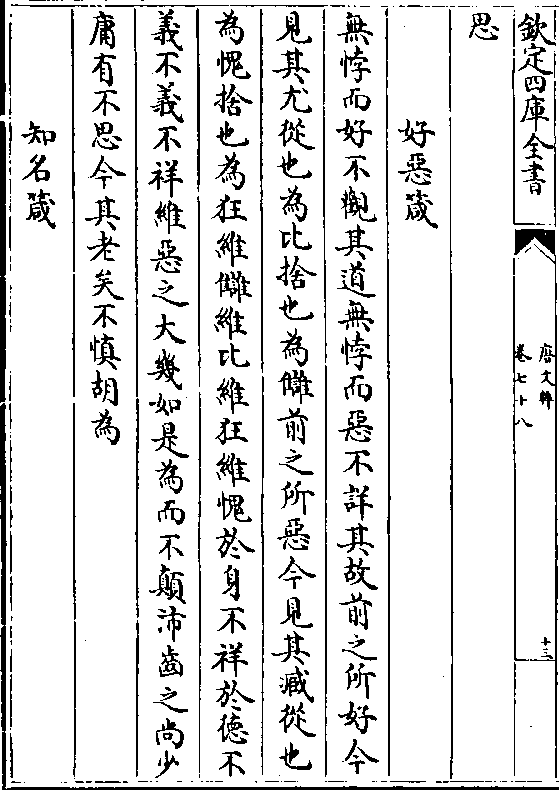 欽定四庫全書
唐文粹
卷七十八
十三
思
好惡箴
無悖而好不觀其道無悖而惡不詳其故前之所好今
見其尤從也為比捨也為讎前之所惡今見其臧從也
為愧捨也為狂維讎維比維狂維愧於身不祥於德不
義不義不祥維惡之大幾如是為而不顛沛齒之尚少
庸有不思今其老矣不慎胡為
知名箴